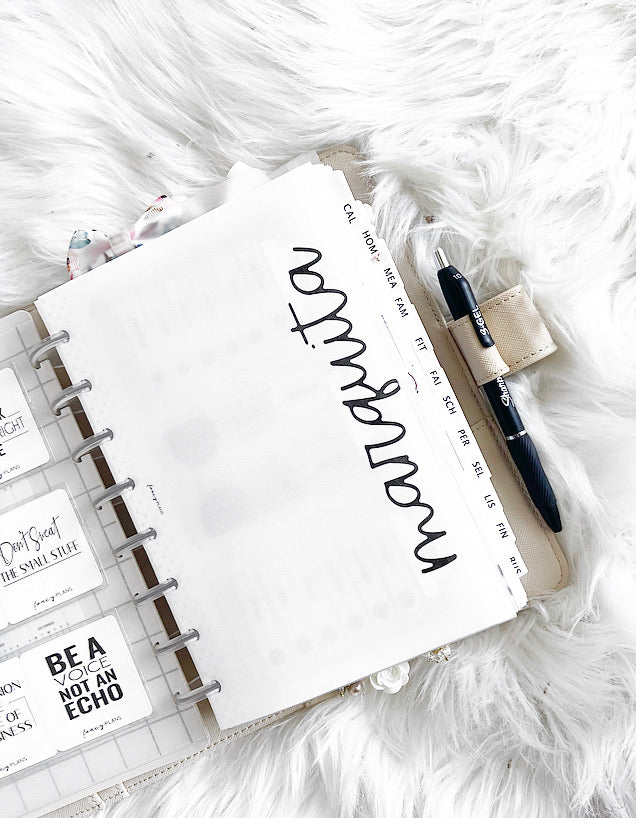 marquita
CAL
HOM
MEA
FAM
FIT
FAI
SCH
PER
SEL
LIS
FIN
BUS
S-GEL
Sharpie
RIGHT
PLANS
Don't Sweat
THE SMALL STUFF
fancy PLANS
BE A
VOICE
NOT AN
ECHO
fancy PLANS
OF